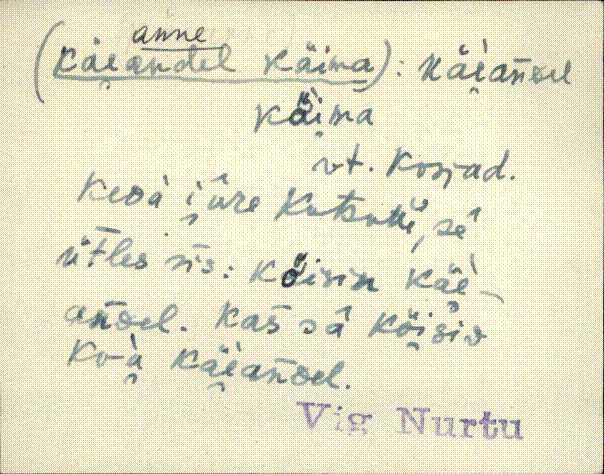 anne
(käeandel käima): käiañdel
käima
vt. kosjad.
keda jure kutsutti, sè
ütles sis: käisin käe-
añdel. kas sa käisid
ka käeañdel.
Vig Nurtu